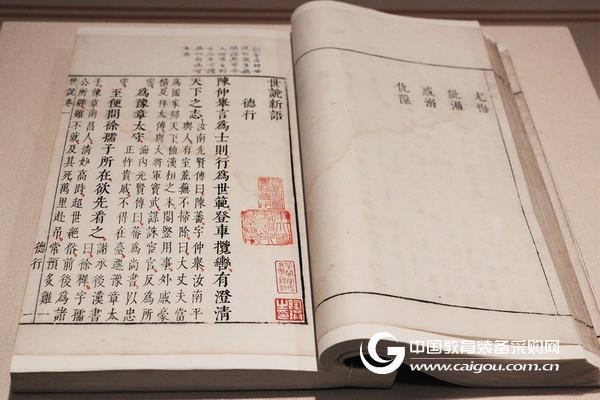 尤悔
紕漏
惑溺
仇隟
世說新語
德行
陳仲舉言為士則行為世範登車攬轡有澄清
天下之志汝南先賢傳曰陳蕃字仲舉汝南平
輿人有室荒蕪不掃除曰大丈夫當
為國家掃天下值漢桓之末閹豎用事外戚豪
橫及拜太傅與大將軍竇武謀誅宦官反為所
害
為豫章太守海內先賢傳曰蕃為尚書以忠
正忤貴戚不得在臺遷豫章太
守
至便問徐孺子所在欲先看之謝承後漢書
曰徐穉字孺
子豫章南昌人清妙高跱超世絕俗前後為諸
公所辟雖不就及其死萬里赴弔常預炙雞一
世說卷一
德行
一
中国教育装备采购网
www.caigou.com.cn